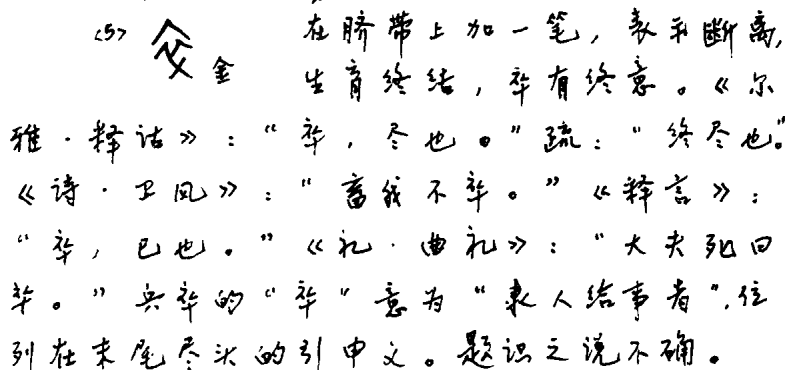 <5> 金 在脐带上加一笔，表示断离，
生育终结，卒有终意。《尔
雅·释诂》：“卒，尽也。”疏：“终尽也。”
《诗·卫风》：“畜我不卒。”《释言》：
“卒，已也。”《礼·曲礼》：“大夫死曰
卒。”兵卒的“卒”意为“隶人给事者”，位
列在末尾尽头的引申义。题识之说不确。